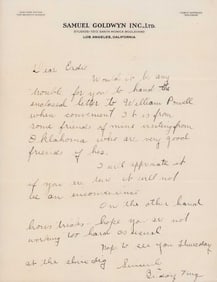 SAMUEL GOLDWYN INC., LTD.
STUDIOS-7210 SANTA MONICA BOULEVARD
LOS ANGELES, CALIFORNIA
Dear
Would it be any
trouble for you to hand the
enclosed letter to William Powell
when convenient It is from
some friends of mine visiting from
Oklahoma who are very good
friends of his.
I will appreciate it
if you are sure it will not
be an inconvenience
On the other hand
hope you are not
working too hard as usual
Hope to see you Thursday
at the